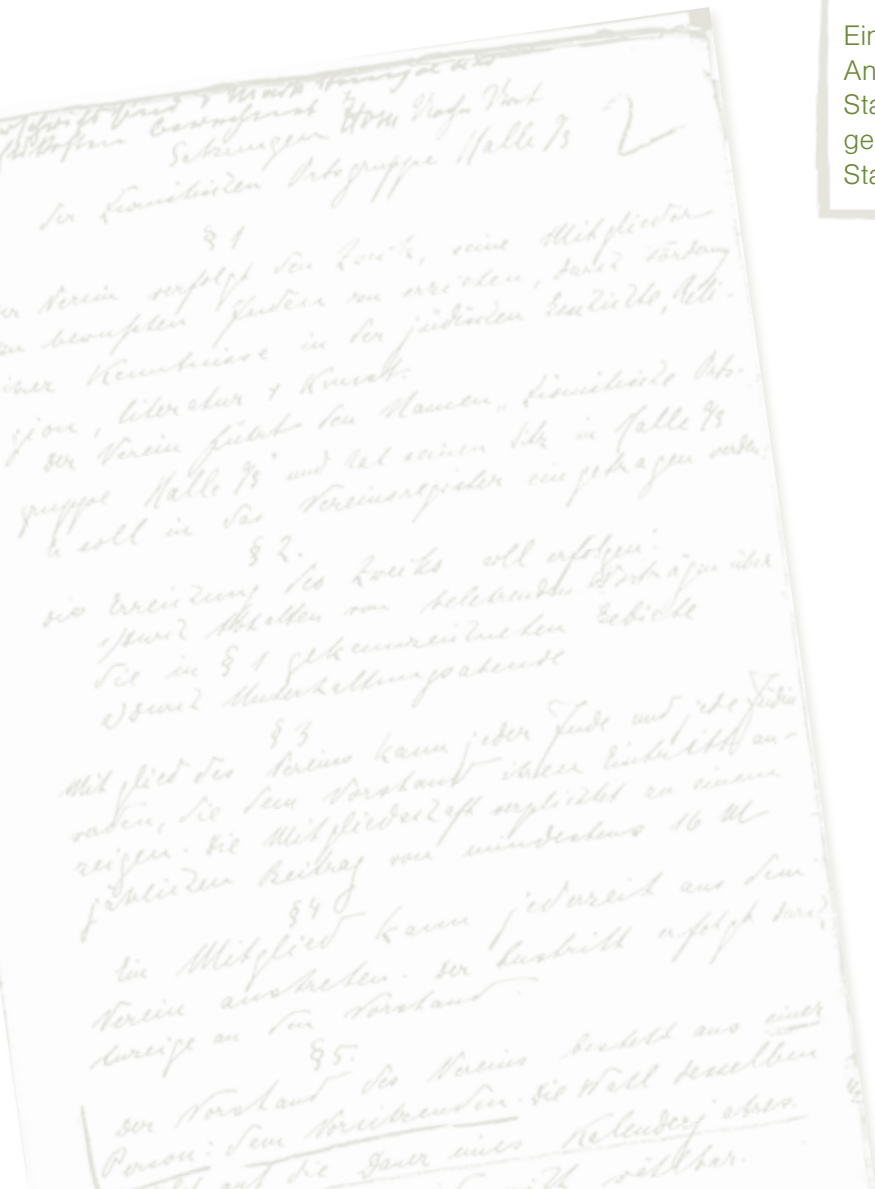 Satzungen
der Zionistischen Ortsgruppe Halle a/S
§ 1
Verein verfolgt den Zweck, seine Mitglieder
bewußten Juden zu erziehen, durch Förderung
ihrer Kenntnisse in der jüdischen Geschichte, Reli-
gion, Literatur & Kunst.
Der Verein führt den Namen „Zionistische Orts-
gruppe Halle a/S" und hat seinen Sitz in Halle a/S
soll in das Vereinsregister eingetragen werden
§ 2.
Die Erreichung des Zwecks soll erfolgen:
1) durch Abhalten von belehrenden Vorträgen über
die in § 1 gekennzeichneten Gebiete
2) durch Unterhaltungsabende
§ 3
Mitglied des Vereins kann jeder Jude und jede Jüdin
werden, die dem Vorstand ihren Eintritt an-
zeigen. Die Mitgliedschaft verpflichtet zu einem
jährlichen Beitrag von mindestens 16 M
§ 4
Ein Mitglied kann jederzeit aus dem
Verein austreten. Der Austritt erfolgt durch
Anzeige an den Vorstand.
§ 5.
Der Vorstand des Vereins besteht aus einer
Person: dem Vorsitzenden. Die Wahl desselben
auf die Dauer eines Kalenderjahres.
wählbar.
Ein
An
Sta
ge
Sta